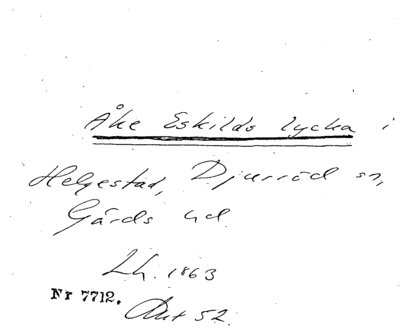 Åke Eskilds lycka i
Helgestad, Djurröd sn,
Gärds hd
Lh. 1863
Nr 7712.
Ant 52